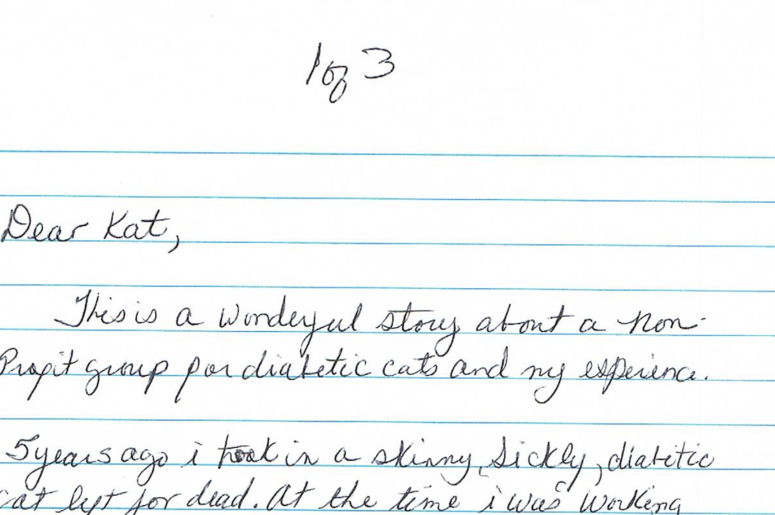 1 of 3
Dear Kat,
This is a wonderful story about a non-
Profit group for diabetic cats and my experience.
5 years ago i took in a skinny, sickly, diabetic
cat left for dead. At the time i was working